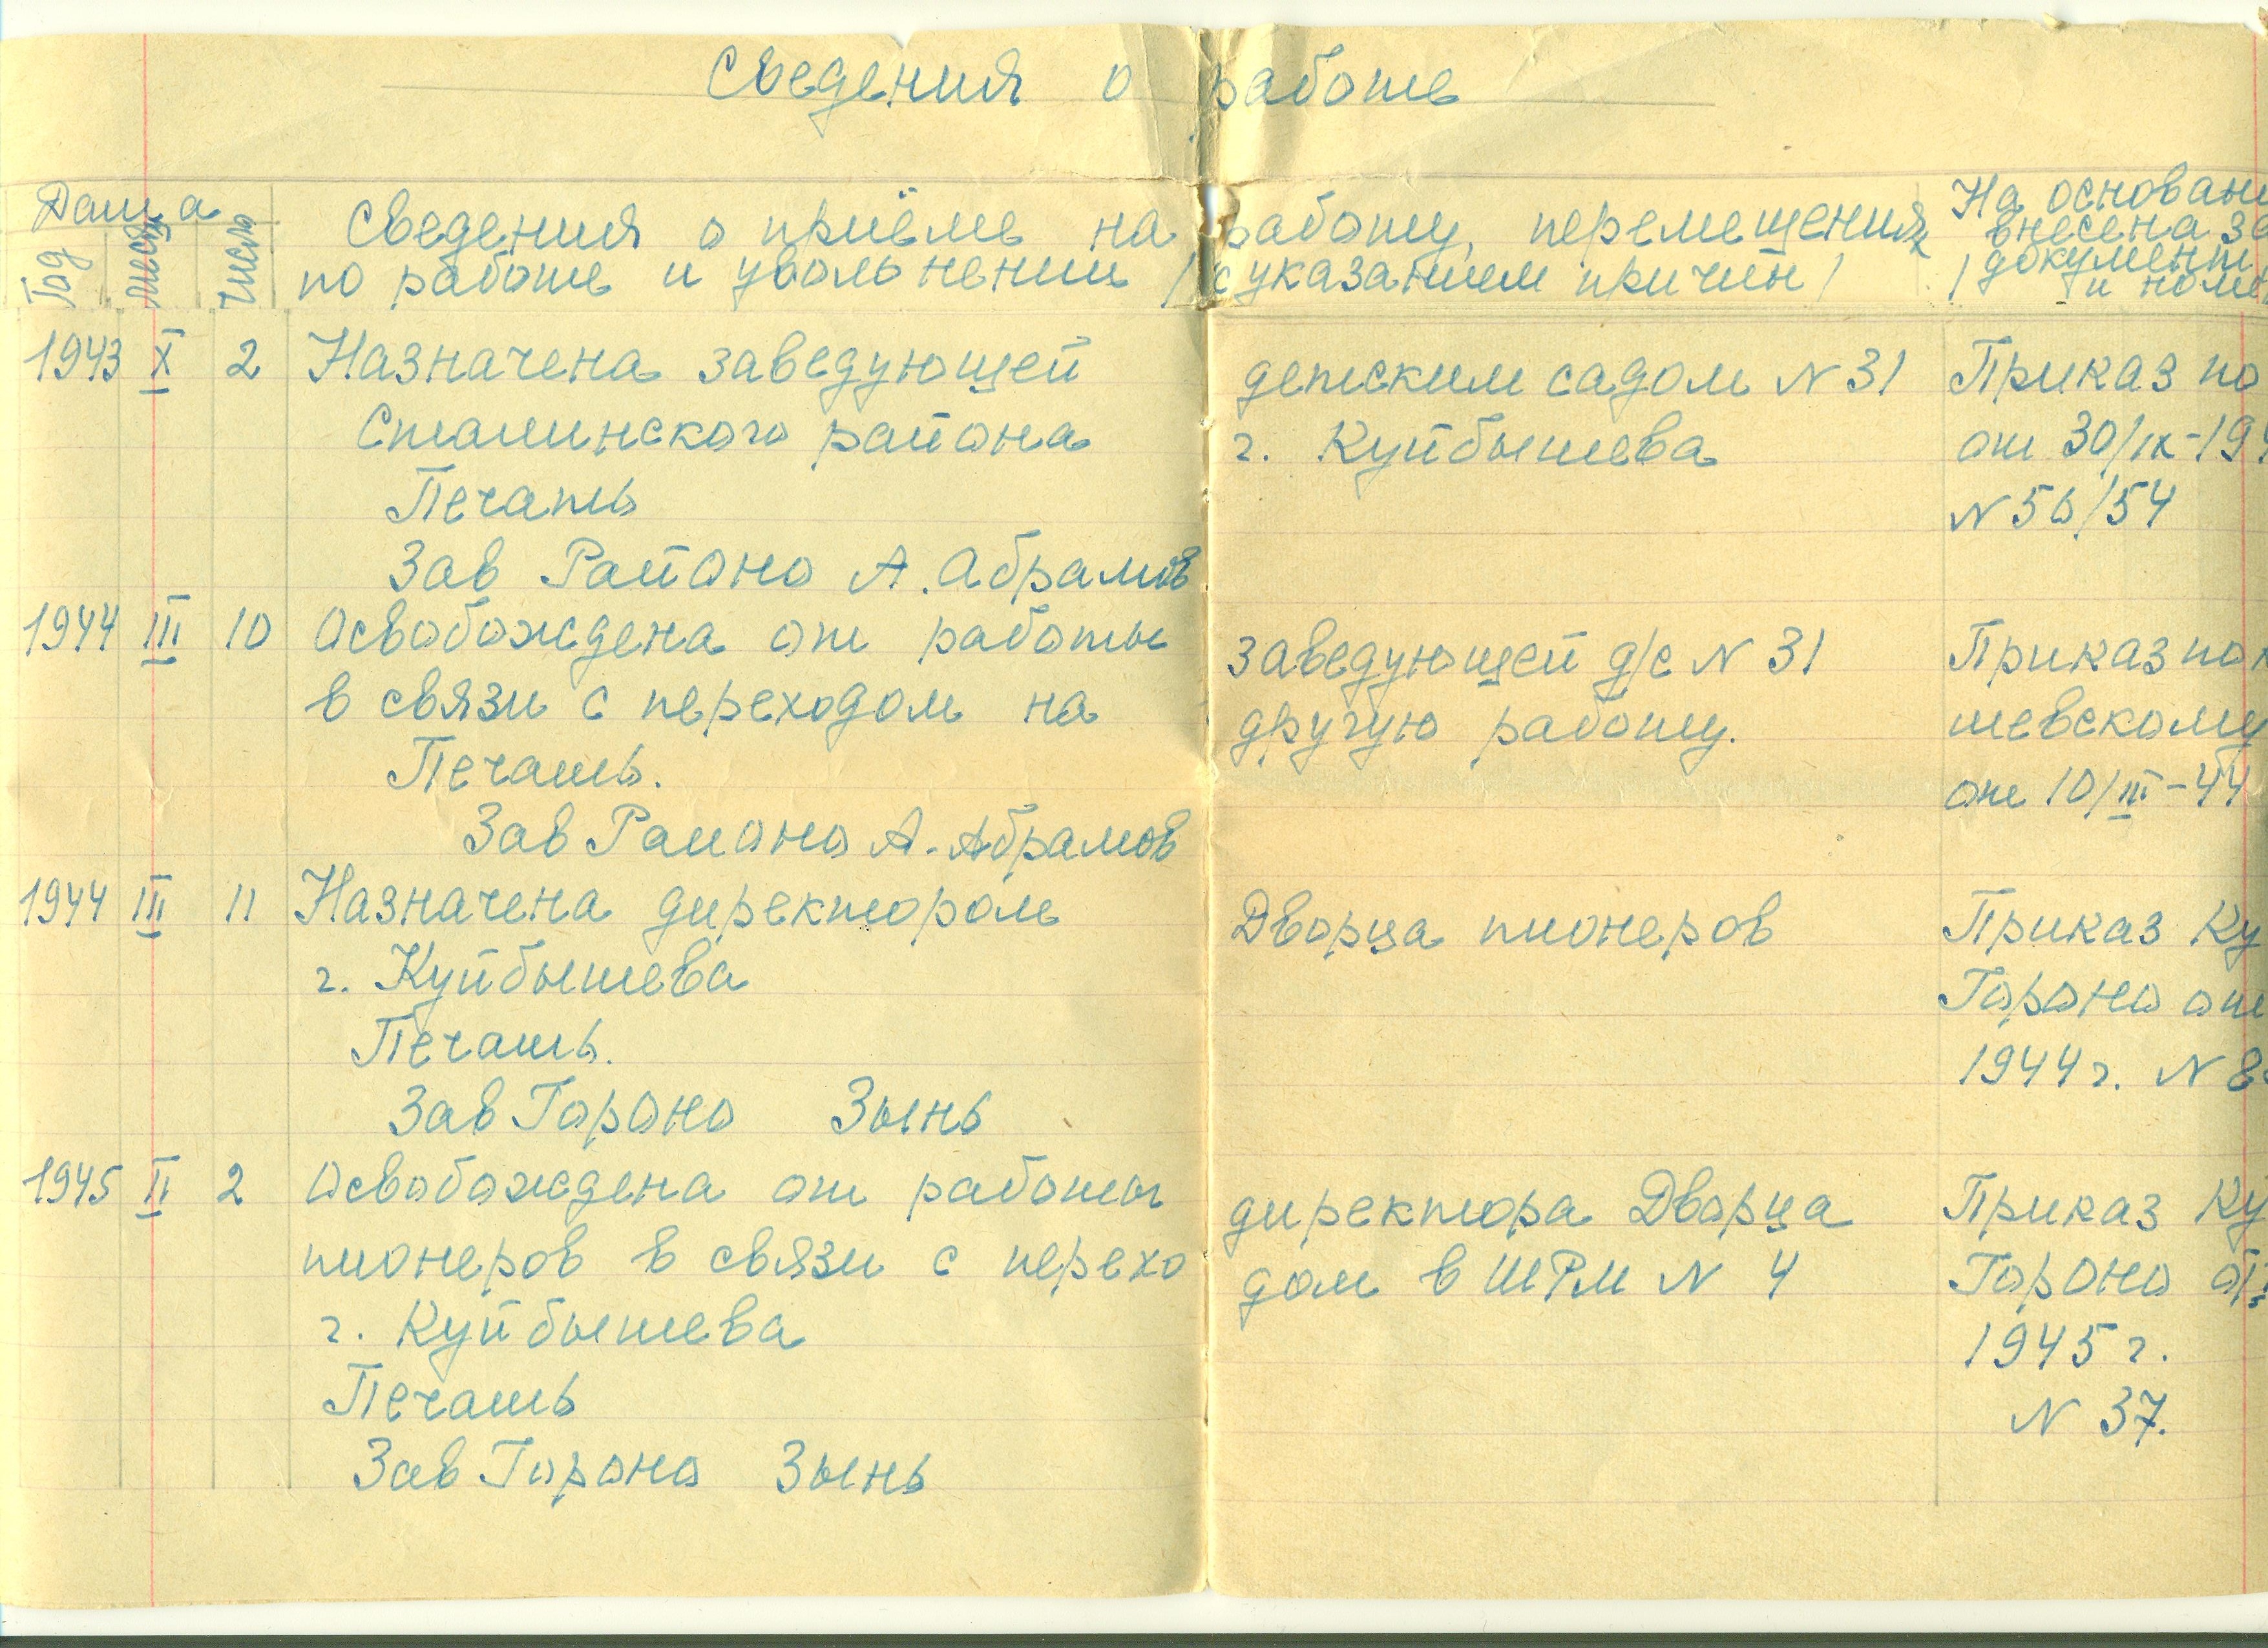 Сведения о работе
Дата
Год
месяц
число
Сведения о приёме на работу, перемещениях
по работе и увольнении / с указанием причин /
На основани
внесена за
/ документ
и номе
1943 X 2 Назначена заведующей детским садом N 31 Приказ по
Сталинского района г. Куйбышева от 30/IX-194
Печать N 56/54
Зав Районо А. Абрамов
1944 III 10 Освобождена от работы заведующей д/с N 31 Приказ по
в связи с переходом на другую работу. шевскому
Печать. от 10/III-44
Зав Районо А. Абрамов
1944 III 11 Назначена директором Дворца пионеров Приказ Ку
г. Куйбышева Гороно от
Печать. 1944 г. N 8
Зав Гороно Зынь
1945 II 2 Освобождена от работы директора Дворца Приказ Ку
пионеров в связи с перехо дом в ШРМ N 4 Гороно от
г. Куйбышева 1945 г.
Печать N 37.
Зав Гороно Зынь